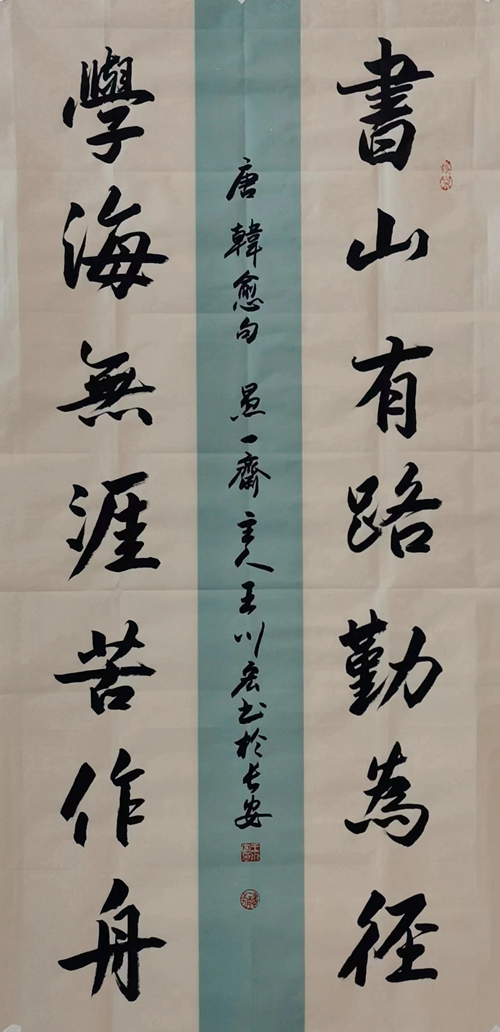 書山有路勤為徑
學海無涯苦作舟
唐 韓愈句 一齋主人王川宏书於长安